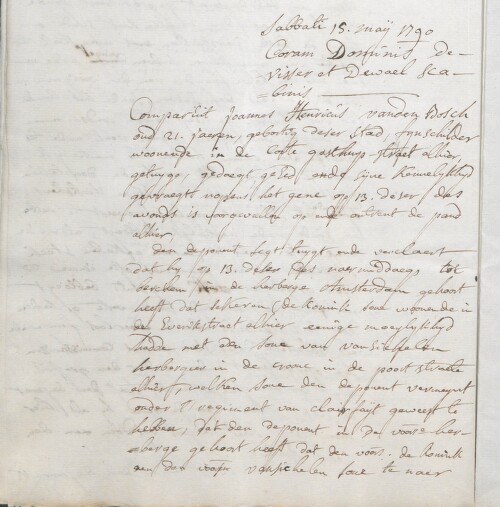 Sabbati 15. maÿ 1790
Coram Dominis de-
visser et Dewael sca-
-binis
Compariit Joannes Henricus vanden Bosch
oud 21. jaeren, geboortig deser stad, fynschilder
woonende in de Corte gasthuys straet alhier,
getuyge, gedaegt ge
gevraegt nopens het gene op 13. deser des
avonds is voorgevallen op ende omtrent de pand
alhier,
den deponent segt tuygt ende verclaert
dat hy op 13. deser des naermiddags tot
in de herberge Amsterdam gehoort
heeft dat sekeren de Konink sone woonende in
de straet alhier eenige moeyelykhyd
hadde met den sone van van
herbergier in de croone in de poort straete
alhier, welken sone den deponent vermeynt
onder 't regiment van clairfayt geweest te
hebben, dat den deponent in de voors. her-
berge gehoort heeft dat den voors. de Konink
aen den voors. sone te naer